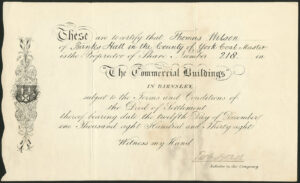 These are to certify that Thomas Wilson
of Banks Hall in the County of York Coal Master
is the Proprietor of Share Number 218 in
"The Commercial Buildings"
IN BARNSLEY,
subject to the Terms and Conditions of
the Deed of Settlement
thereof bearing date the twelfth Day of December
One Thousand eight Hundred and Thirty eight.
Witness my Hand
Solicitor to the Company